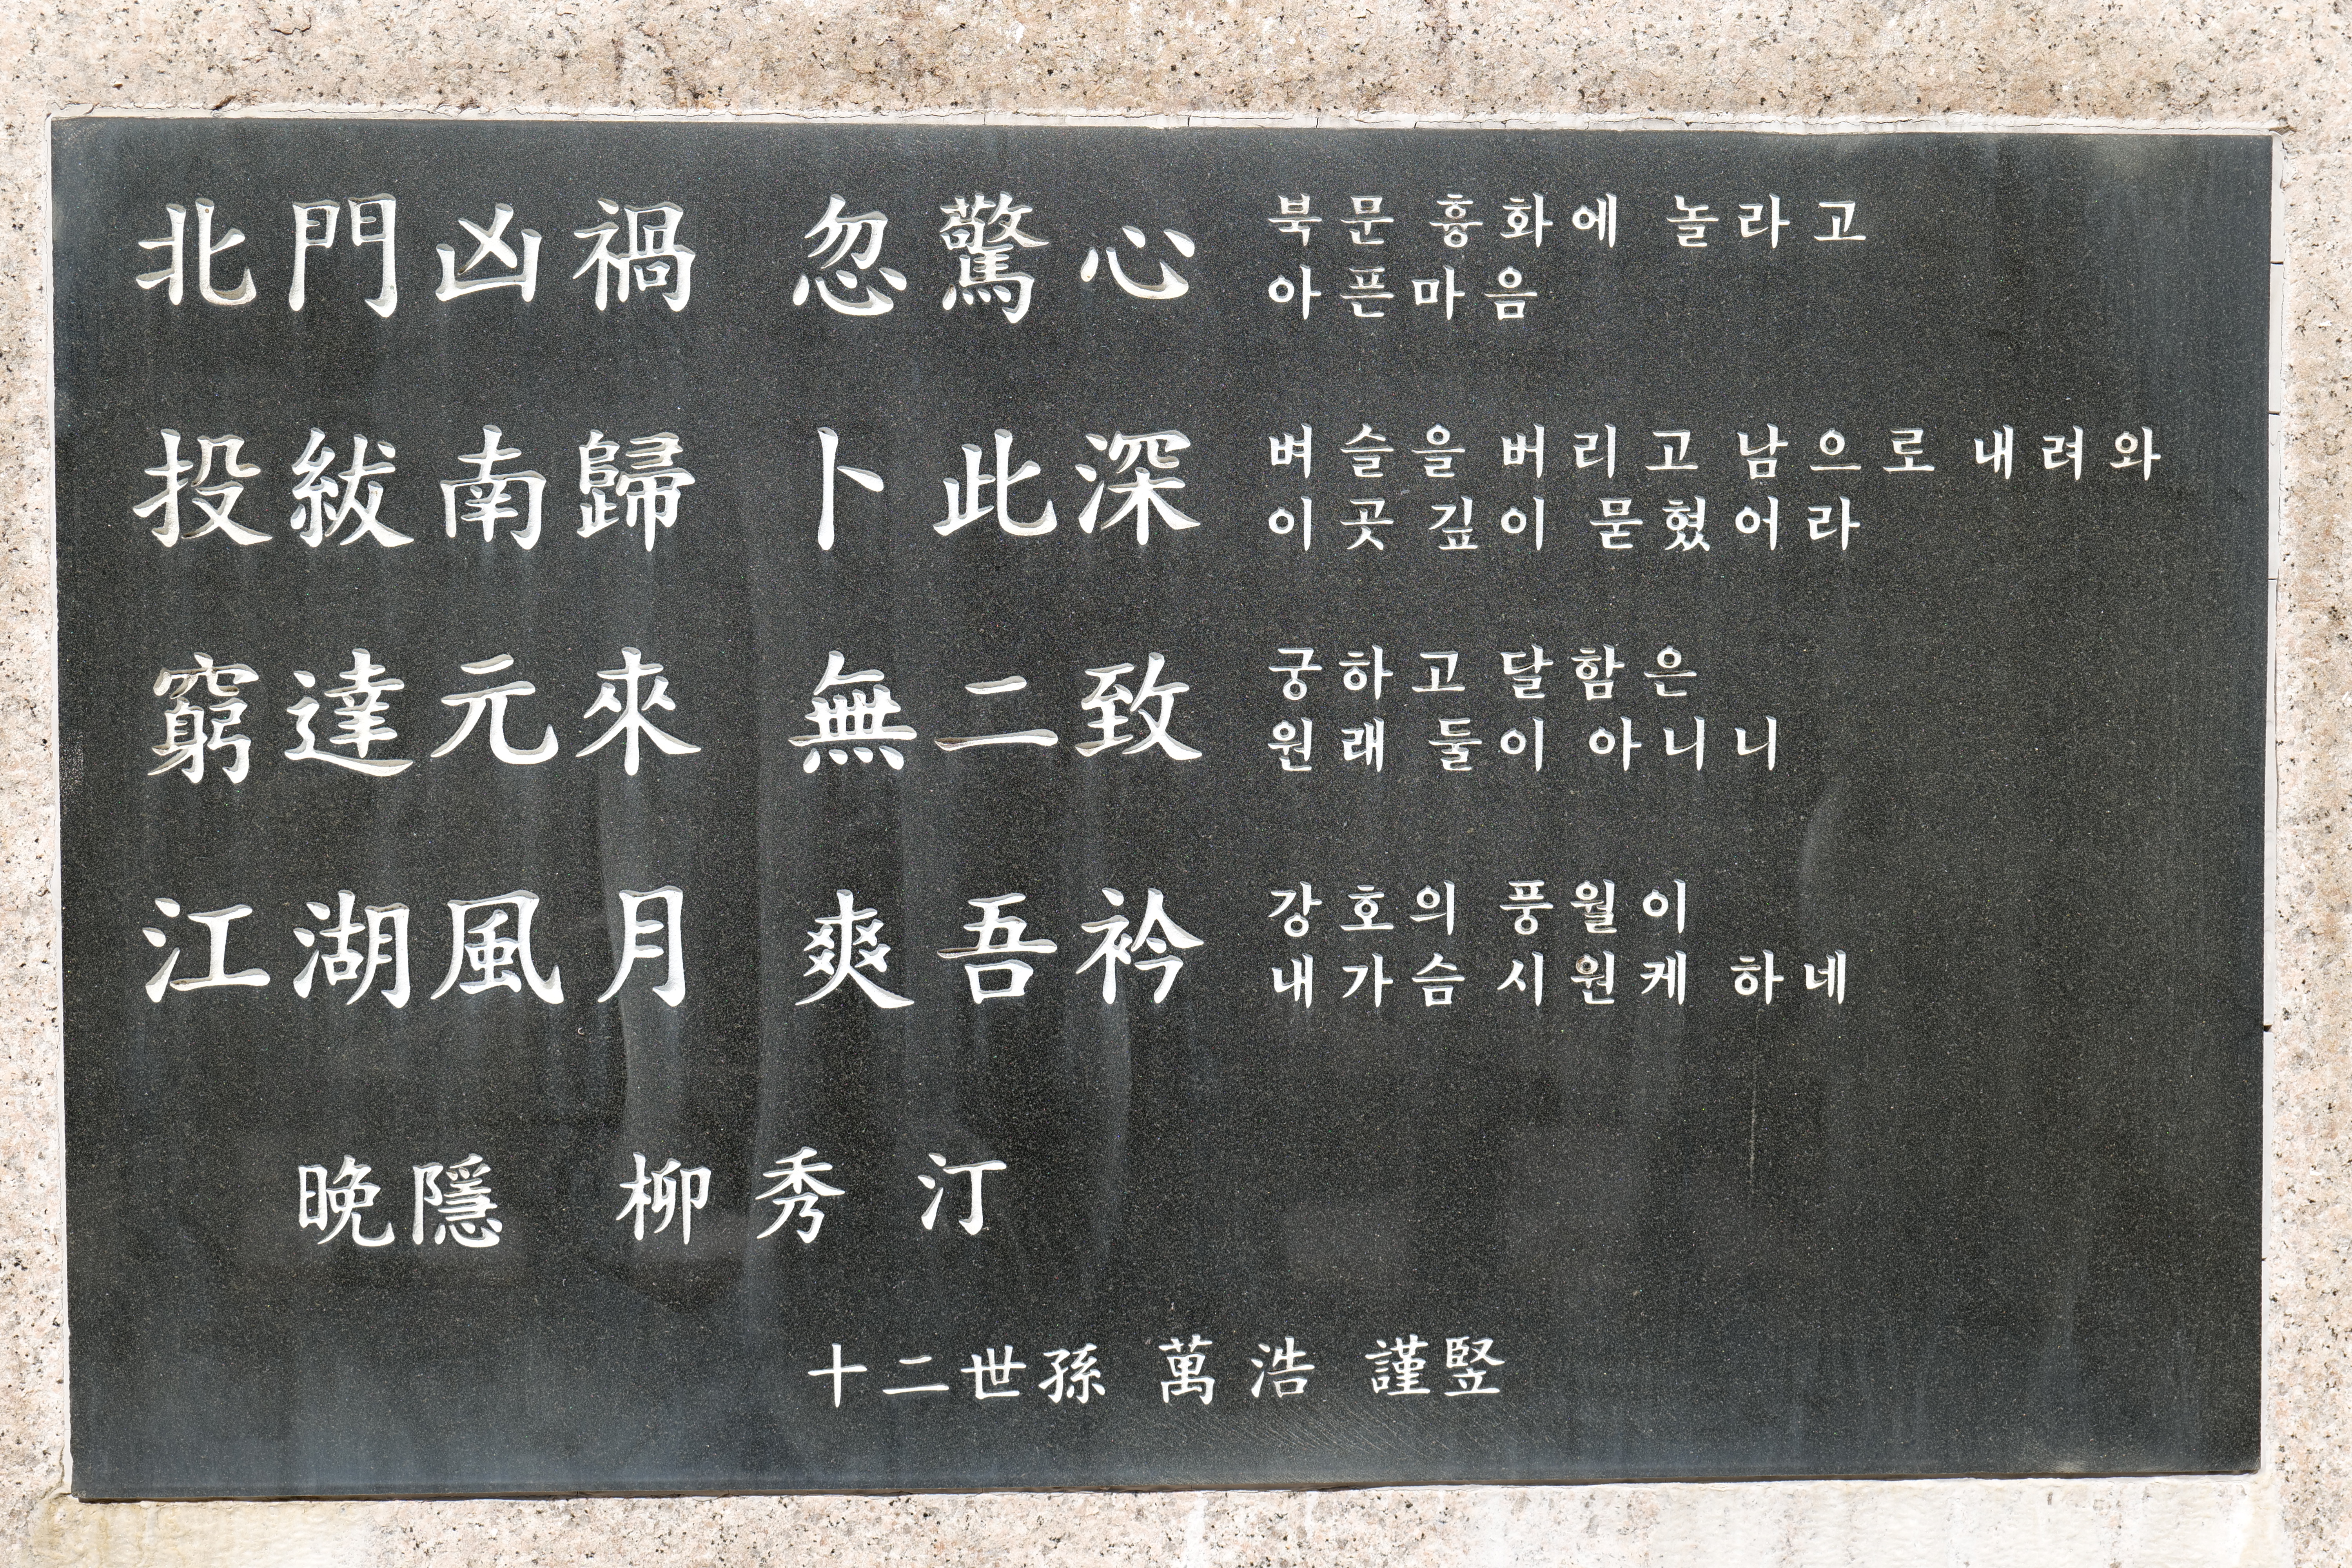 北門凶禍 忽驚心
북문 흉화에 놀라고
아픈마음
投紱南歸 卜此深
벼슬을 버리고 남으로 내려와
이곳 깊이 묻혔어라
窮達元來 無二致
궁하고 달함은
원래 둘이 아니니
江湖風月 爽吾衿
강호의 풍월이
내가슴 시원케 하네
晩隱 柳秀汀
十二世孫 萬浩 謹竪